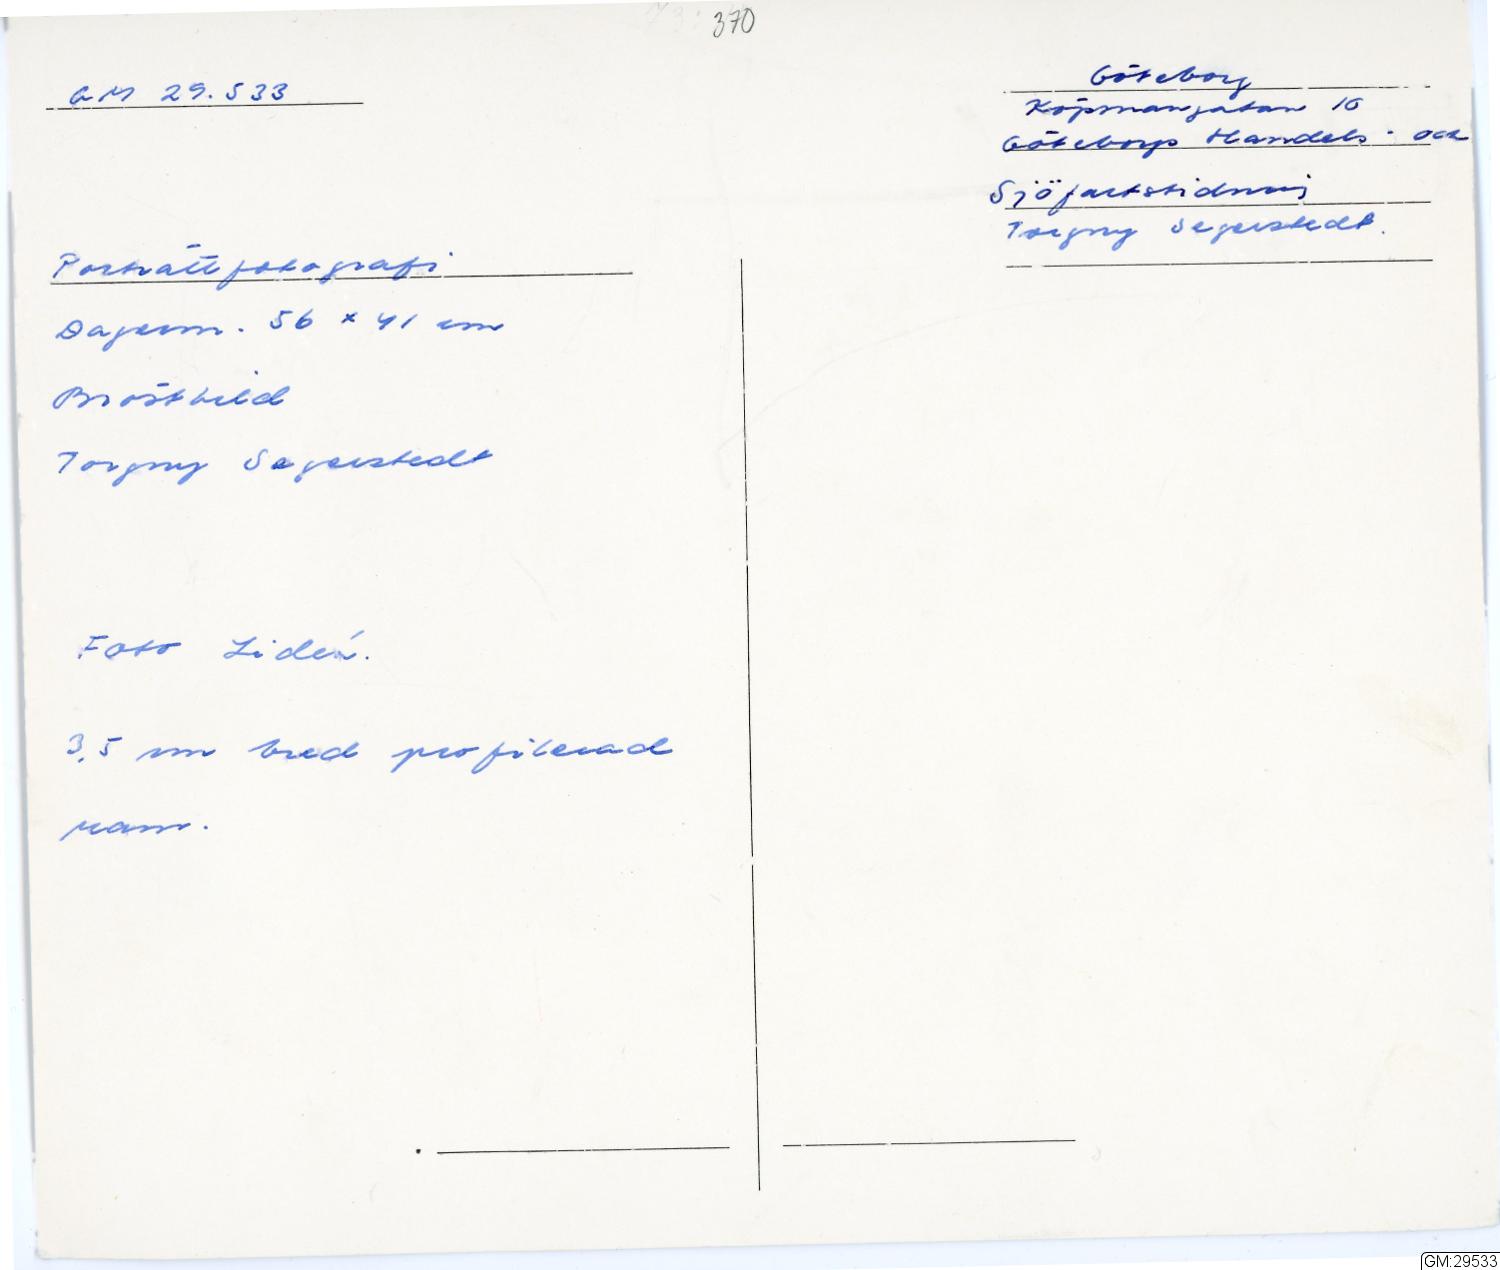 370
GM 29.533
Göteborg
Köpmangatan 10
Göteborgs Handels- och
Sjöfartstidning
Torgny Segerstedt.
Porträttfotografi
Dagerm. 56 x 41 cm
Bröstbild
Torgny Segerstedt
Foto Lidén.
3,5 cm bred profilerad
ram.
GM:29533